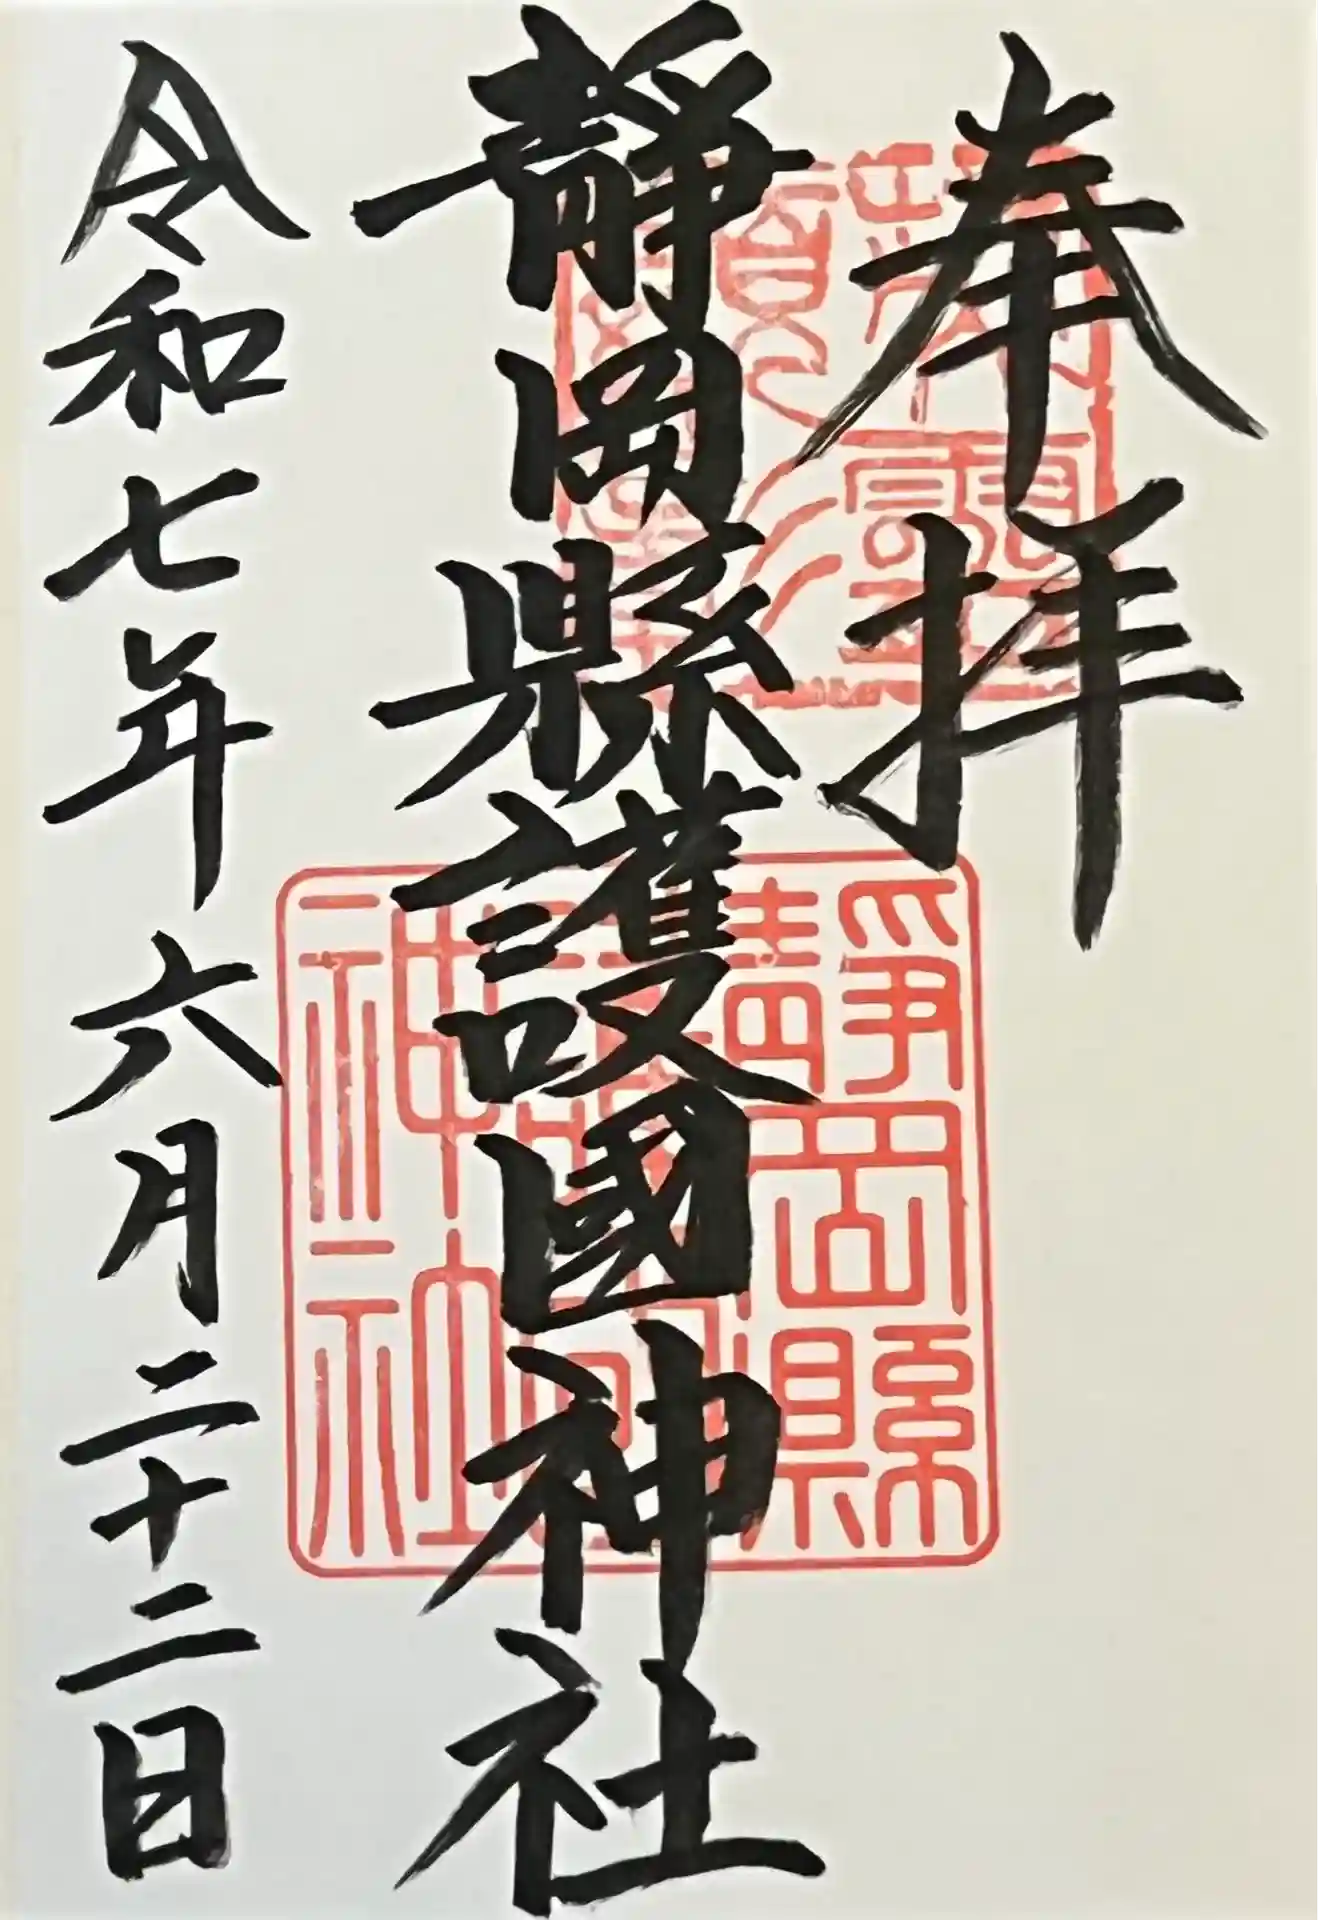 奉拝
靜岡縣護國神社
令和七年六月二十二日
靜岡縣
護國
神社